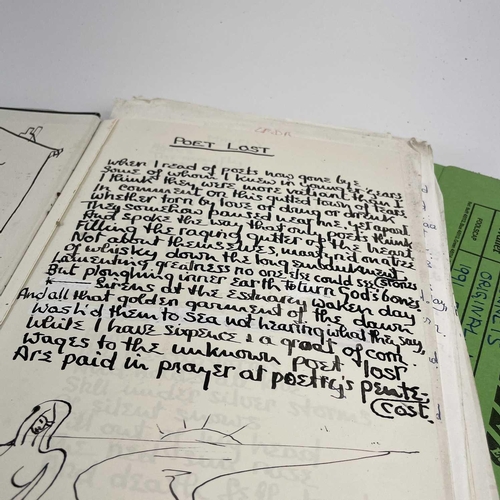 POET LOST
When I read of poets now gone by
Some of whom I knew in younger years
I think they were more valiant than I
In comment on this gutted town of tears
Whether torn by love or drug or drink
They somehow paused in time, yet apart
And spoke the way that only poets think
Filling the raging gutter of the heart
Not about themselves, martyr'd on a tree
Of whisky down the long embankment
Lamenting greatness no one else could see
But ploughing inner earth to turn God's bones
Sirens at the essuary waken day
And all that golden garment of the dawn
Wash'd them to sea not hearing what they say,
While I have sixpence & a groat of corn.
Wages to the unknown poet lost
Are paid in prayer at poetry's pente-
cost.
ORIGINALS
1991